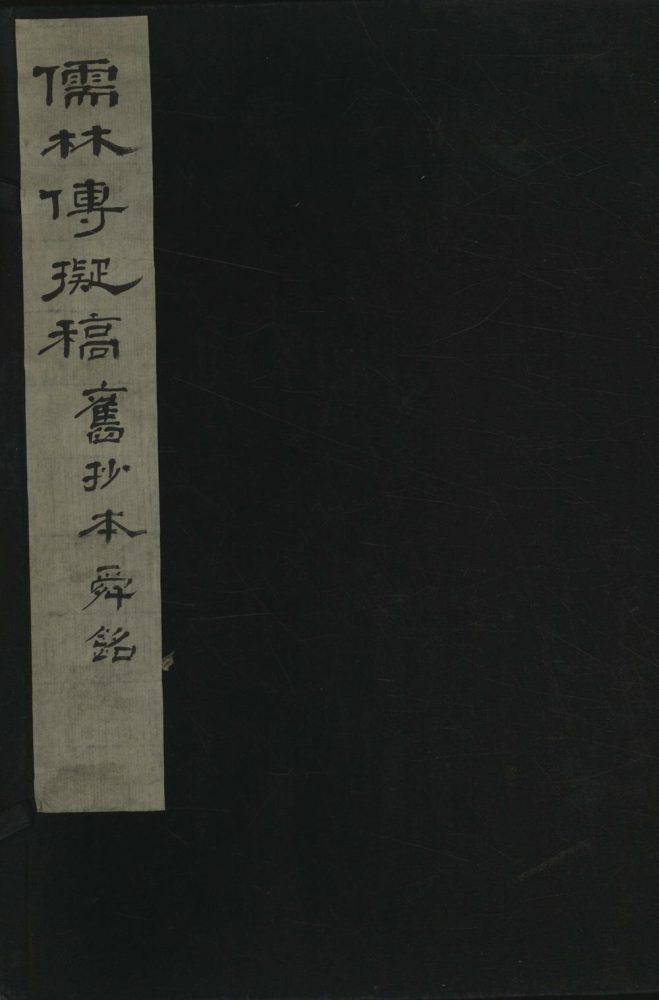 儒林傳擬稿 舊抄本 舜銘